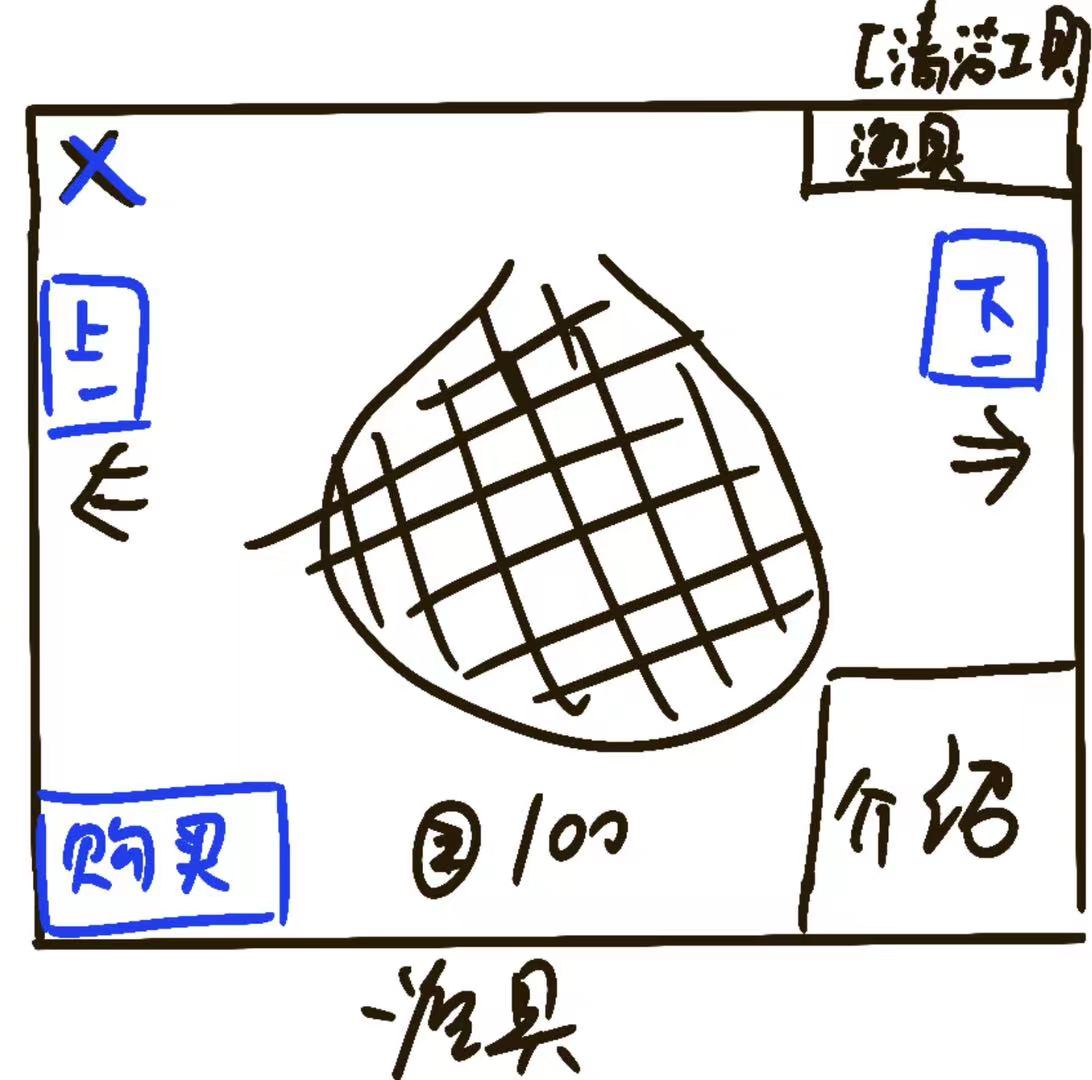 [清洁工具
渔具
X
上一
下一
介绍
购买
100
-渔具